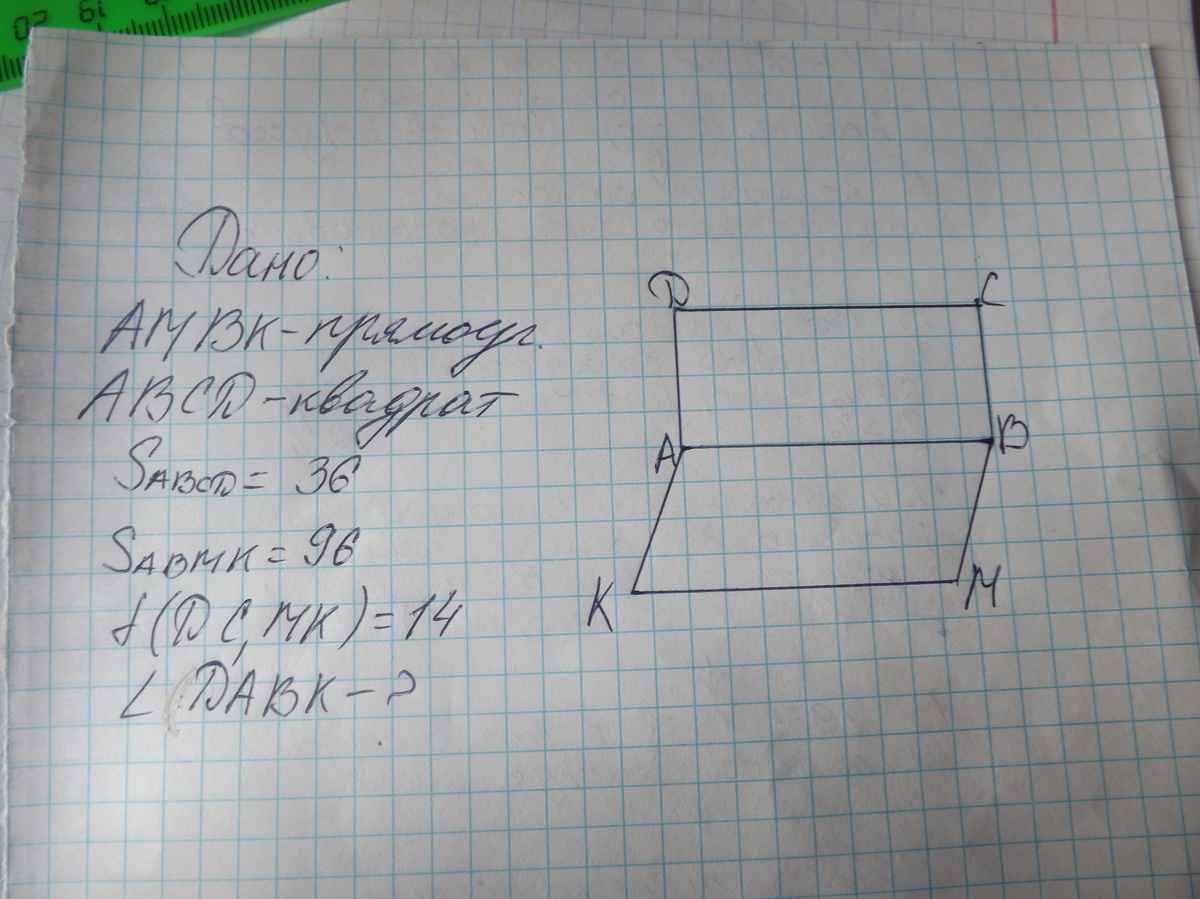 20 19
Дано:
АМВК-прямоуг.
АВСD-квадрат
SABCD = 36
SABMK = 96
f(DC, MK) = 14
∠(DABK - ?
D C
A B
K M